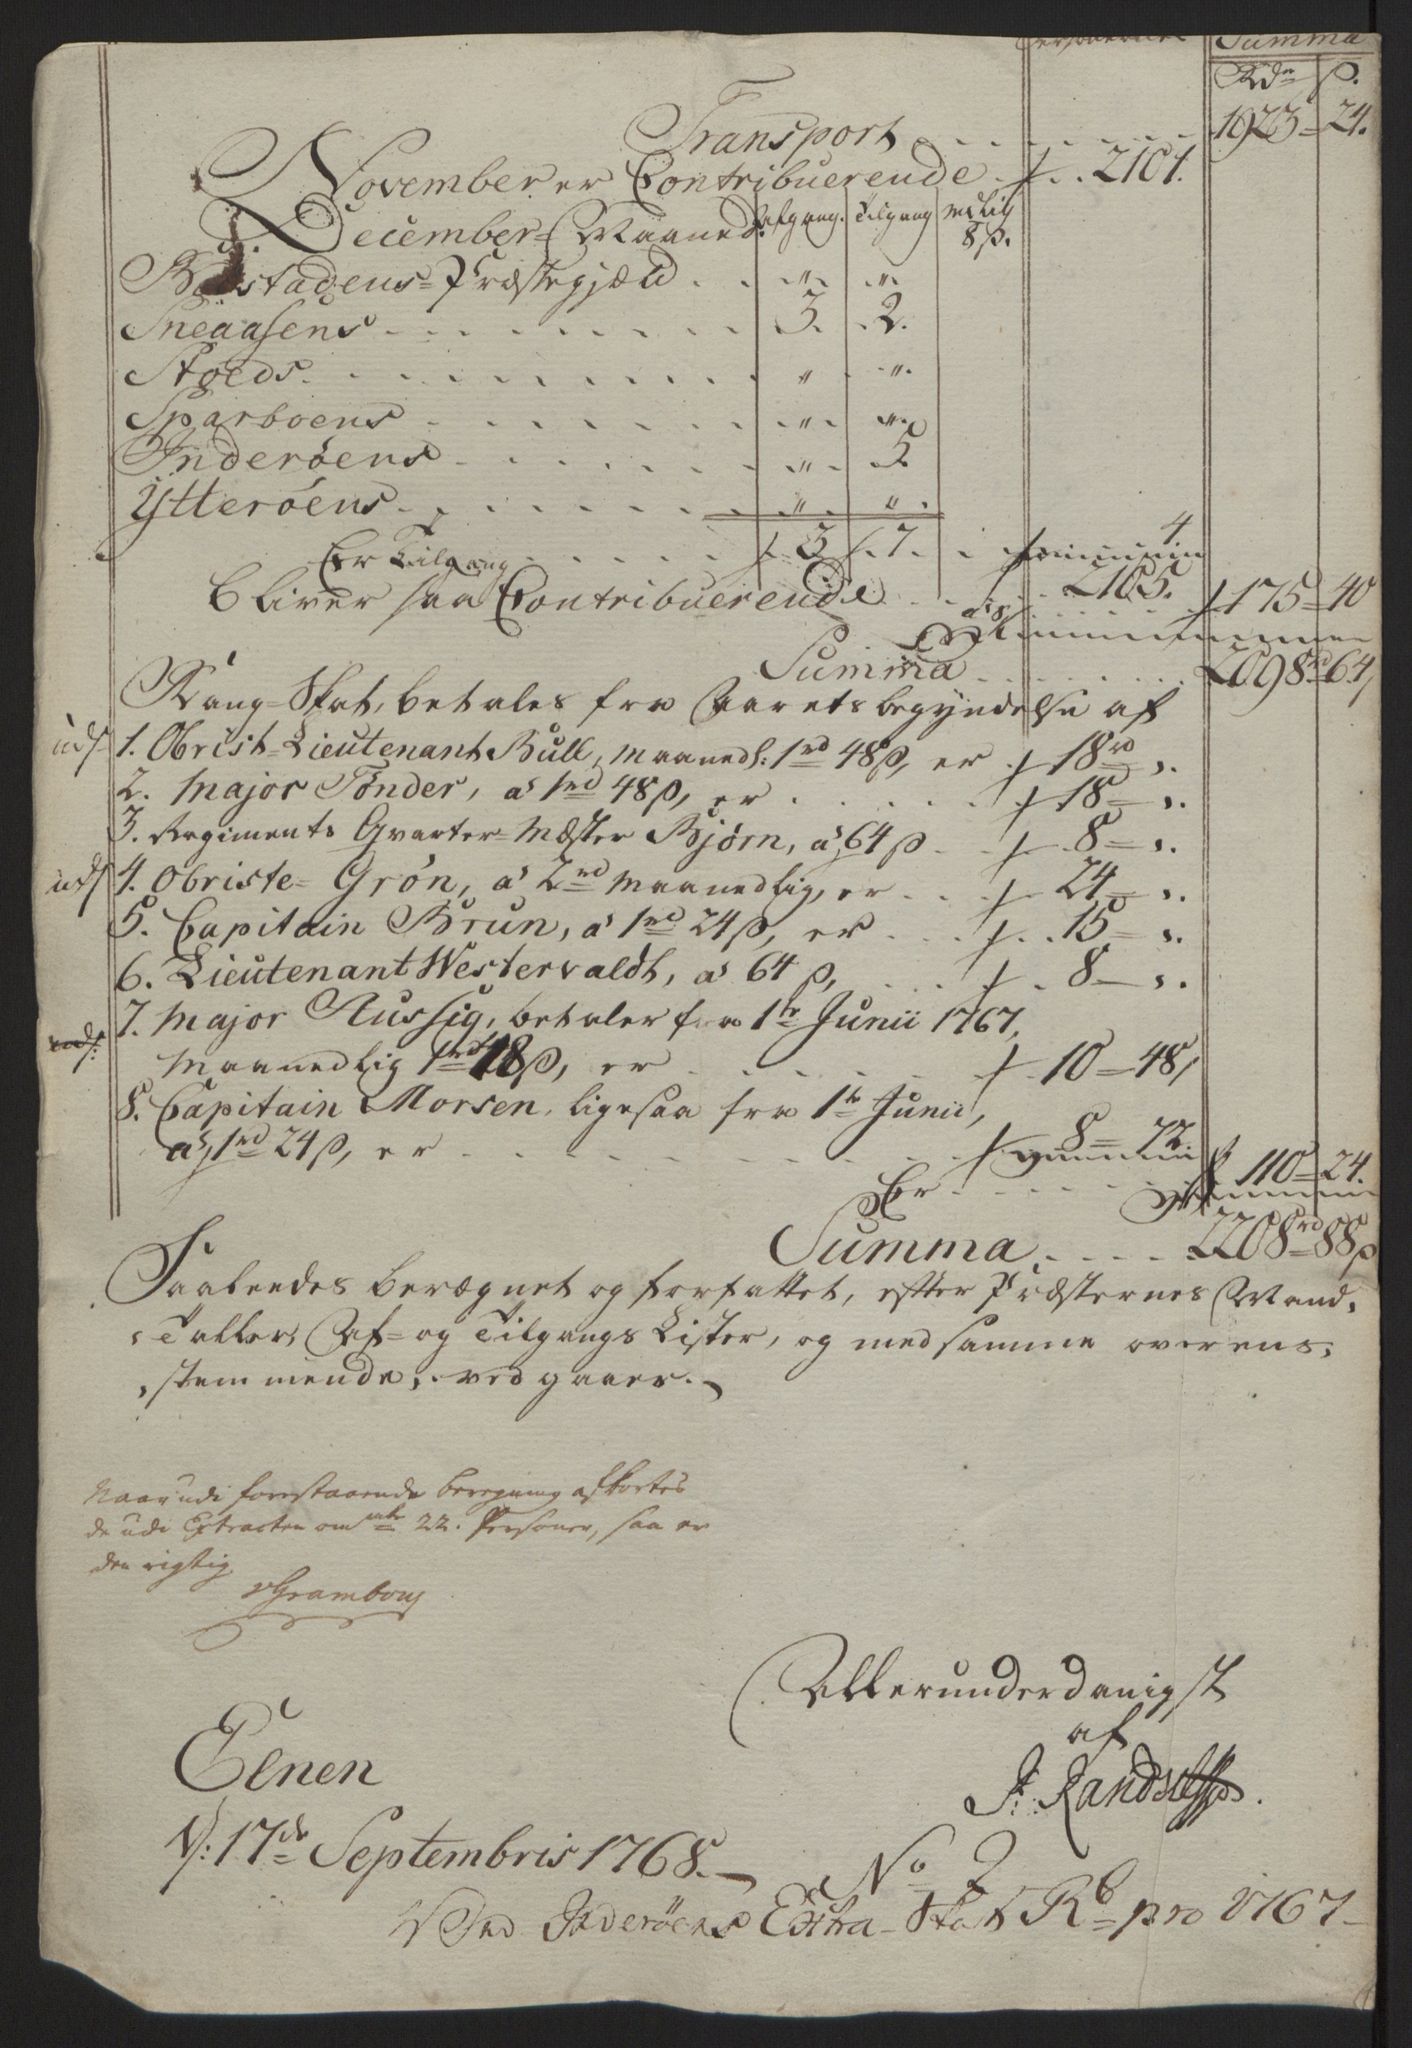 Personerne Summa
Rdr ß.
Transport . . . . . 1923 = 24.
November er Contribuerende . . 2101.
December = Maaned. Afgang. Tilgang mdlig 8 ß.
Bostadens = Præstegjæld . . „ . „
Sneaasens . . . 3. . 2.
Stoeds . . . „ . „
Sparboens . . . „ . „
Inderöens . . . „ . 5
Ytteröens . . . „ . „
Er Tilgang . . . 3 . 7 . . 4
bliver saa Contribuerende . . 2105. 175 = 40
Summa . . . 2098rd 64,
Rang = Skat, betales fra Aarets begyndelse af
uds 1. Obrist = Lieutenant Bull, maanedl: 1rd 48ß, er 18rd „.
2. Major Tönder, a 1rd 48ß, er . . . 18 = „.
3. Regiments Qvarter = Mæster Bjørn, a 64 ß . . 8 = „.
uds 4. Obriste = Grön, a 2rd maanedlig, er . . . 24 = „.
5. Capitain Brun, a 1rd 24ß, er . . . 15 = „.
6. Lieutenant Westervaldt, a 64 ß, . . . 8 = „.
7. Major Aussig, betaler fra 1te Junii 1767,
uds: maanedlig 1rd 48ß, er . . . 10 = 48,
8. Capitain Morsen, ligesaa fra 1te Junii,
a, 1rd 24ß, er . . . 8 = 72.
Er . . . 110 = 24.
Summa . . . 2208rd 88ß
Saaleedes beregnet og forfattet, efter Præsternes Mand,
, Taller, Af = og Tilgangs Lister, og med samme overens,
, stemmende, vedgaaer.
Naar udi forestaaende beregning afkortes
de udi Extracten om 22. Personer, saa er
den rigtig
vGramboug
Allerunderdanigst
af
J: Randulff.
Elnen
d: 17de Septembris 1768.
No 2
Ved Inderöens Extra Skat Rb pro 1767